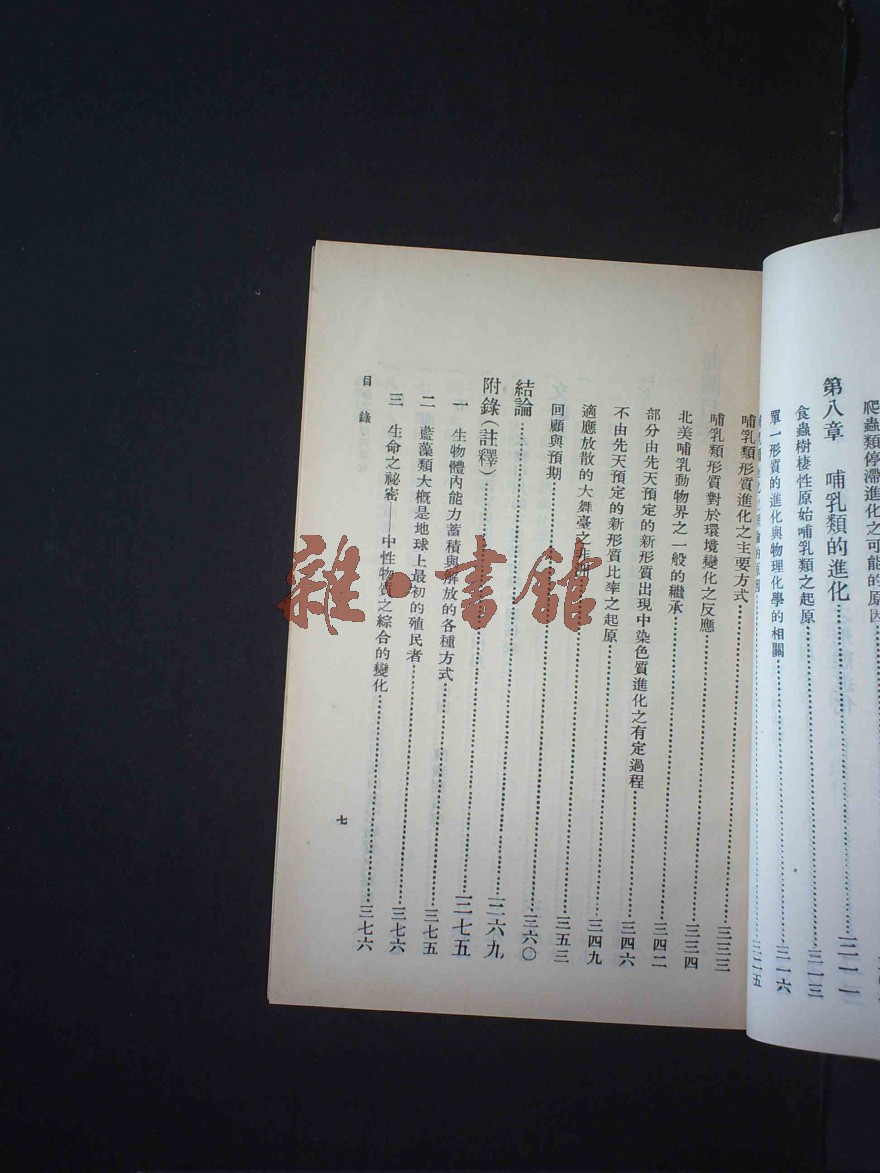 爬蟲類停滯進化之可能的原因
第八章　哺乳類的進化……三一一
食蟲樹棲性原始哺乳類之起原……三一三
單一形質的進化與物理化學的相關……三一六
……三二五
哺乳類形質進化之主要方式……三三三
哺乳類形質對於環境變化之反應……三三四
北美哺乳動物界之一般的繼承……三四二
部分由先天預定的新形質出現中染色質進化之有定過程……三四六
不由先天預定的新形質比率之起原……三四九
適應放散的大舞臺之非洲……三五三
回顧與預期……三六〇
結論……三六九
附錄(註釋)……三七五
一　生物體內能力蓄積與解放的各種方式……三七五
二　藍藻類大概是地球上最初的殖民者……三七六
三　生命之祕密——中性物質之綜合的變化……三七六
目錄
七
雜·書館